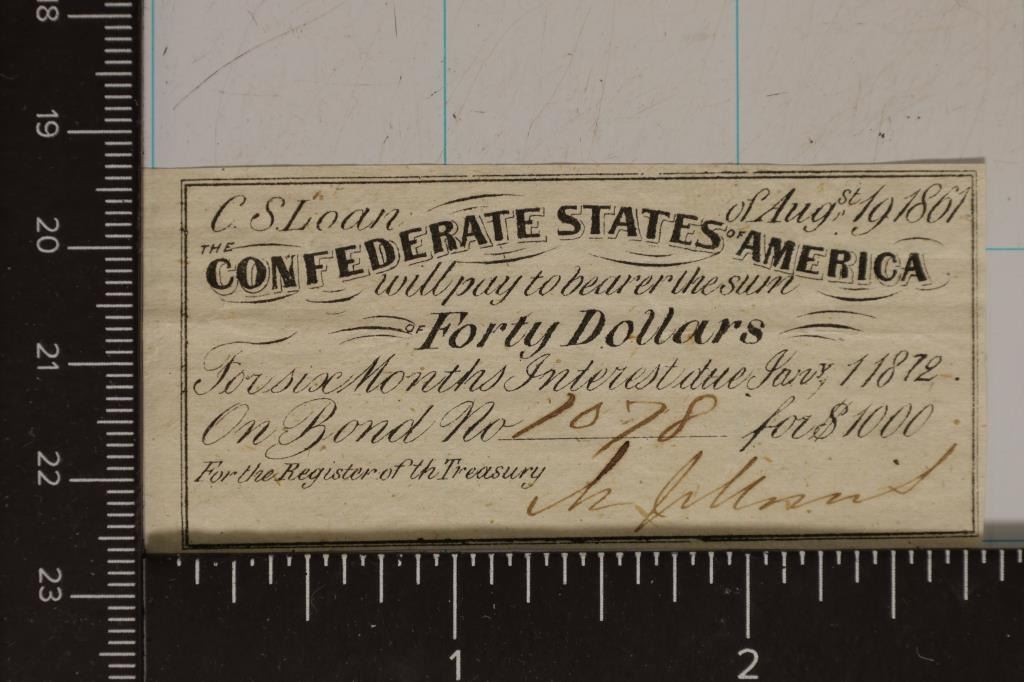 18
19
20
21
22
23
C. S. Loan of Augst. 19 1861
THE CONFEDERATE STATES OF AMERICA
will pay to bearer the sum
OF Forty Dollars
For six Months Interest due Jany. 1 1872.
On Bond No 1078 for $1000
For the Register of th Treasury
1 2